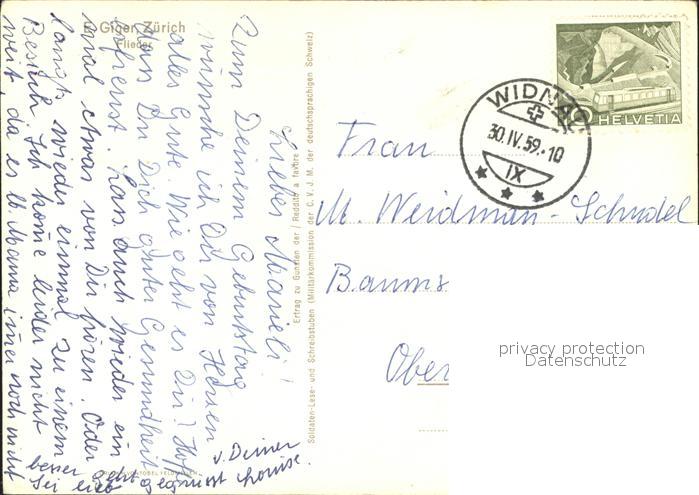 E. Giger, Zürich
Flieder
Liebes Marieli!
Zum Deinem Geburtstag
wünsche ich Dir von Herzen
alles Gute. Wie geht es Dir? Hoffe
dass Du Dich guter Gesundheit
erfreust. Lass auch wieder ein
mal etwas von Dir hören. Oder
langts wieder einmal zu einem
Besuch. Ich kome leider nicht
weit, da es lb. Mama imer noch nicht
besser geht
Sei lieb gegrüsst v. Deiner
Louise.
Ertrag zu Gunsten der / Reddito a favore
Soldaten-Lese- und Schreibstuben (Militärkommission der C.V.J.M. der deutschsprachigen Schweiz)
HELVETIA
WIDNAU
30.IV.59.-10
IX
Frau
M. Weidman-Schudel
Baums
Ober
privacy protection
Datenschutz